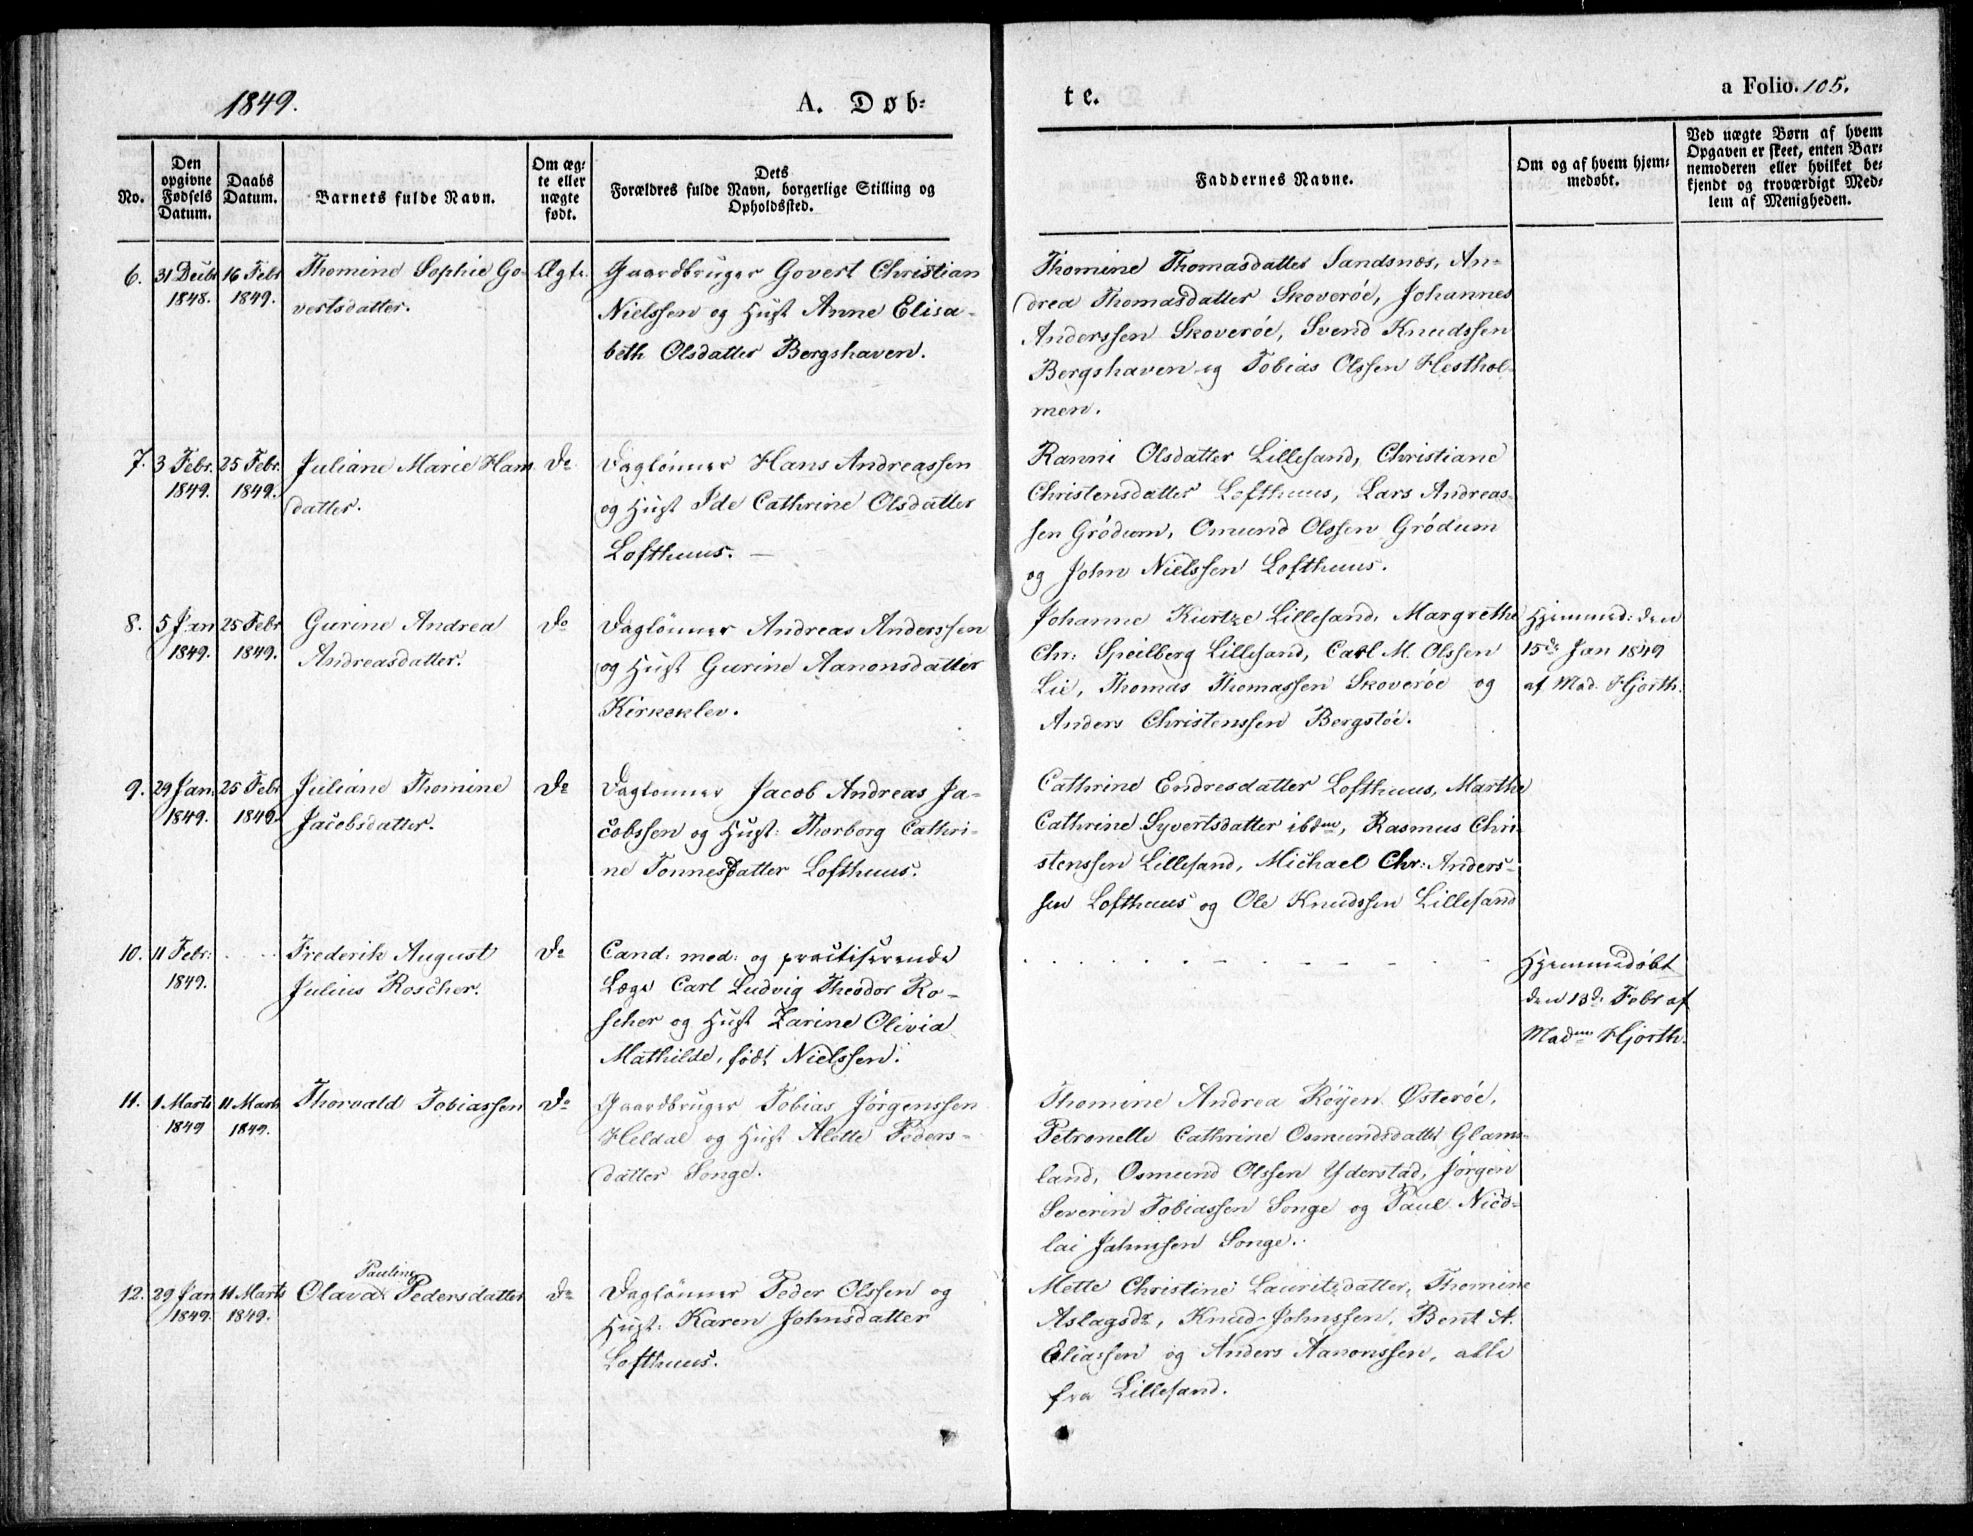 1849.
A. Døb-
te.
a Folio. 105.
No.
Den opgivne Fødsels Datum.
Daabs Datum.
Barnets fulde Navn.
Om ægte eller uægte født.
Dets
Forældres fulde Navn, borgerlige Stilling og
Opholdssted.
Faddernes Navne.
Om og af hvem hjem-
medøbt.
Ved uægte Børn af hvem
Opgaven er skeet, enten Bar-
nemoderen eller hvilket be-
kjendt og troværdigt Med-
lem af Menigheden.
6. 31 Decbr 1848. 16 Febr 1849. Thomine Sophie Go-
vertsdatter.
Ægte.
Gaardbruger Govert Christian
Nielssen og Hust Anne Elisa-
beth Olsdatter Bergshaven.
Thomine Thomasdatter Sandsnæs, An-
drea Thomasdatter Skoverøe, Johannes
Anderssen Skoverøe, Svend Knudssen
Bergshaven og Tobias Olssen Hesthol-
men.
7. 3 Febr. 1849. 25 Febr. 1849. Juliane Marie Hans
datter.
Do
Daglønner Hans Andreassen
og Hust Ide Cathrine Olsdatter
Lofthuus. —
Ranni Olsdatter Lillesand, Christiane
Christensdatter Lofthuus, Lars Andreas-
sen Grödum, Omund Olssen Grödum
og John Nielssen Lofthuus.
8. 5 Jan 1849. 25 Febr 1849. Gurine Andrea
Andreasdatter.
Do
Daglønner Andreas Anderssen
og Hust Gurine Aanonsdatter
Kirkeklev.
Johanne Kurtze Lillesand, Margrethe
Chr: Speilberg Lillesand, Carl M. Olssen
Lie, Thomas Thomassen Skoverøe og
Anders Christenssen Bergstøe.
Hjemmed: den
15de Jan 1849
af Mad. Hjorth.
9. 29 Jan. 1849. 25 Febr 1849. Juliane Thomine
Jacobsdatter.
Do
Daglønner Jacob Andreas Ja-
cobssen og Hust: Thorborg Cathri-
ne Tønnesdatter Lofthuus.
Cathrine Endresdatter Lofthuus, Marthe
Cathrine Syvertsdatter ibdm, Rasmus Chri-
stenssen Lillesand, Michael Chr: Anders-
sen Lofthuus og Ole Knudssen Lillesand
10. 11 Febr: 1849. Frederik August
Julius Roscher.
Do
Cand: med: og practiserende
Læge Carl Ludvig Theodor Ro-
scher og Hust Zarine Olivia
Mathilde, født Nielssen.
Hjemmedøbt
den 13de Febr af
Madm Hjorth.
11. 1 Marts 1849 11 Marts 1849. Thorvald Tobiassen
Do
Gaardbruger Tobias Jørgenssen
Heldal og Hust Alette Peders-
datter Songe.
Thomine Andrea Røyen Østerøe,
Petronelle Cathrine Osmundsdatter Glams-
land, Osmund Olssen Yderstad, Jørgen
Severin Tobiassen Songe og Paul Nico-
lai Jahnssen Songe.
12. 29 Jan 1849. 11 Marts 1849. Olava Pauline Pedersdatter
Do
Daglønner Peder Olssen og
Hust: Karen Johnsdatter
Lofthuus.
Mette Christine Lauritzdatter, Thomine
Aslagsdr, Knud Johnssen, Bent A.
Eliassen og Anders Aanonssen, alle
fra Lillesand.